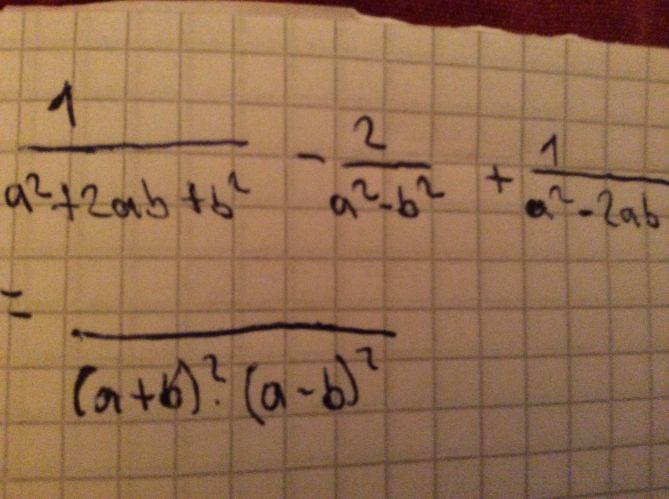 1/(a²+2ab+b²) - 2/(a²-b²) + 1/(a²-2ab
= /((a+b)²·(a-b)²)